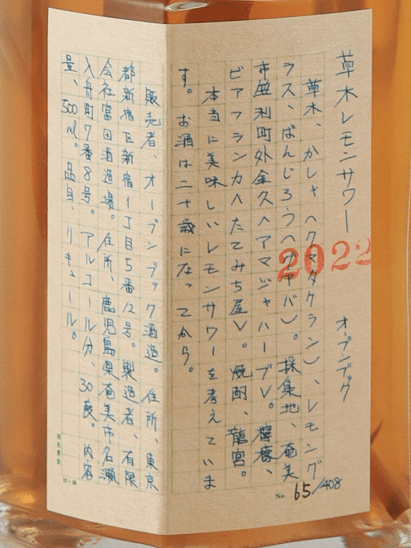 草木レモンサワー
オープンブック
草木、かしゃ〈クマタケラン〉、レモング
ラス、ばんじろう〈グァバ〉。採集地、奄美
市笠利町外金久〈アマンジャハーブ〉。檸檬、
ビアフランカ〈たてみち屋〉。焼酎、龍宮。
本当に美味しいレモンサワーを考えていま
す。お酒は二十歳になってから。
販売者、オープンブック酒造。住所、東京
都新宿区新宿1丁目5番12号。製造者、有限
会社富田酒造場。住所、鹿児島県奄美市名瀬
入舟町7番8号。アルコール分、30度。内容
量、500ml。品目、リキュール。
2022
No. 65/408